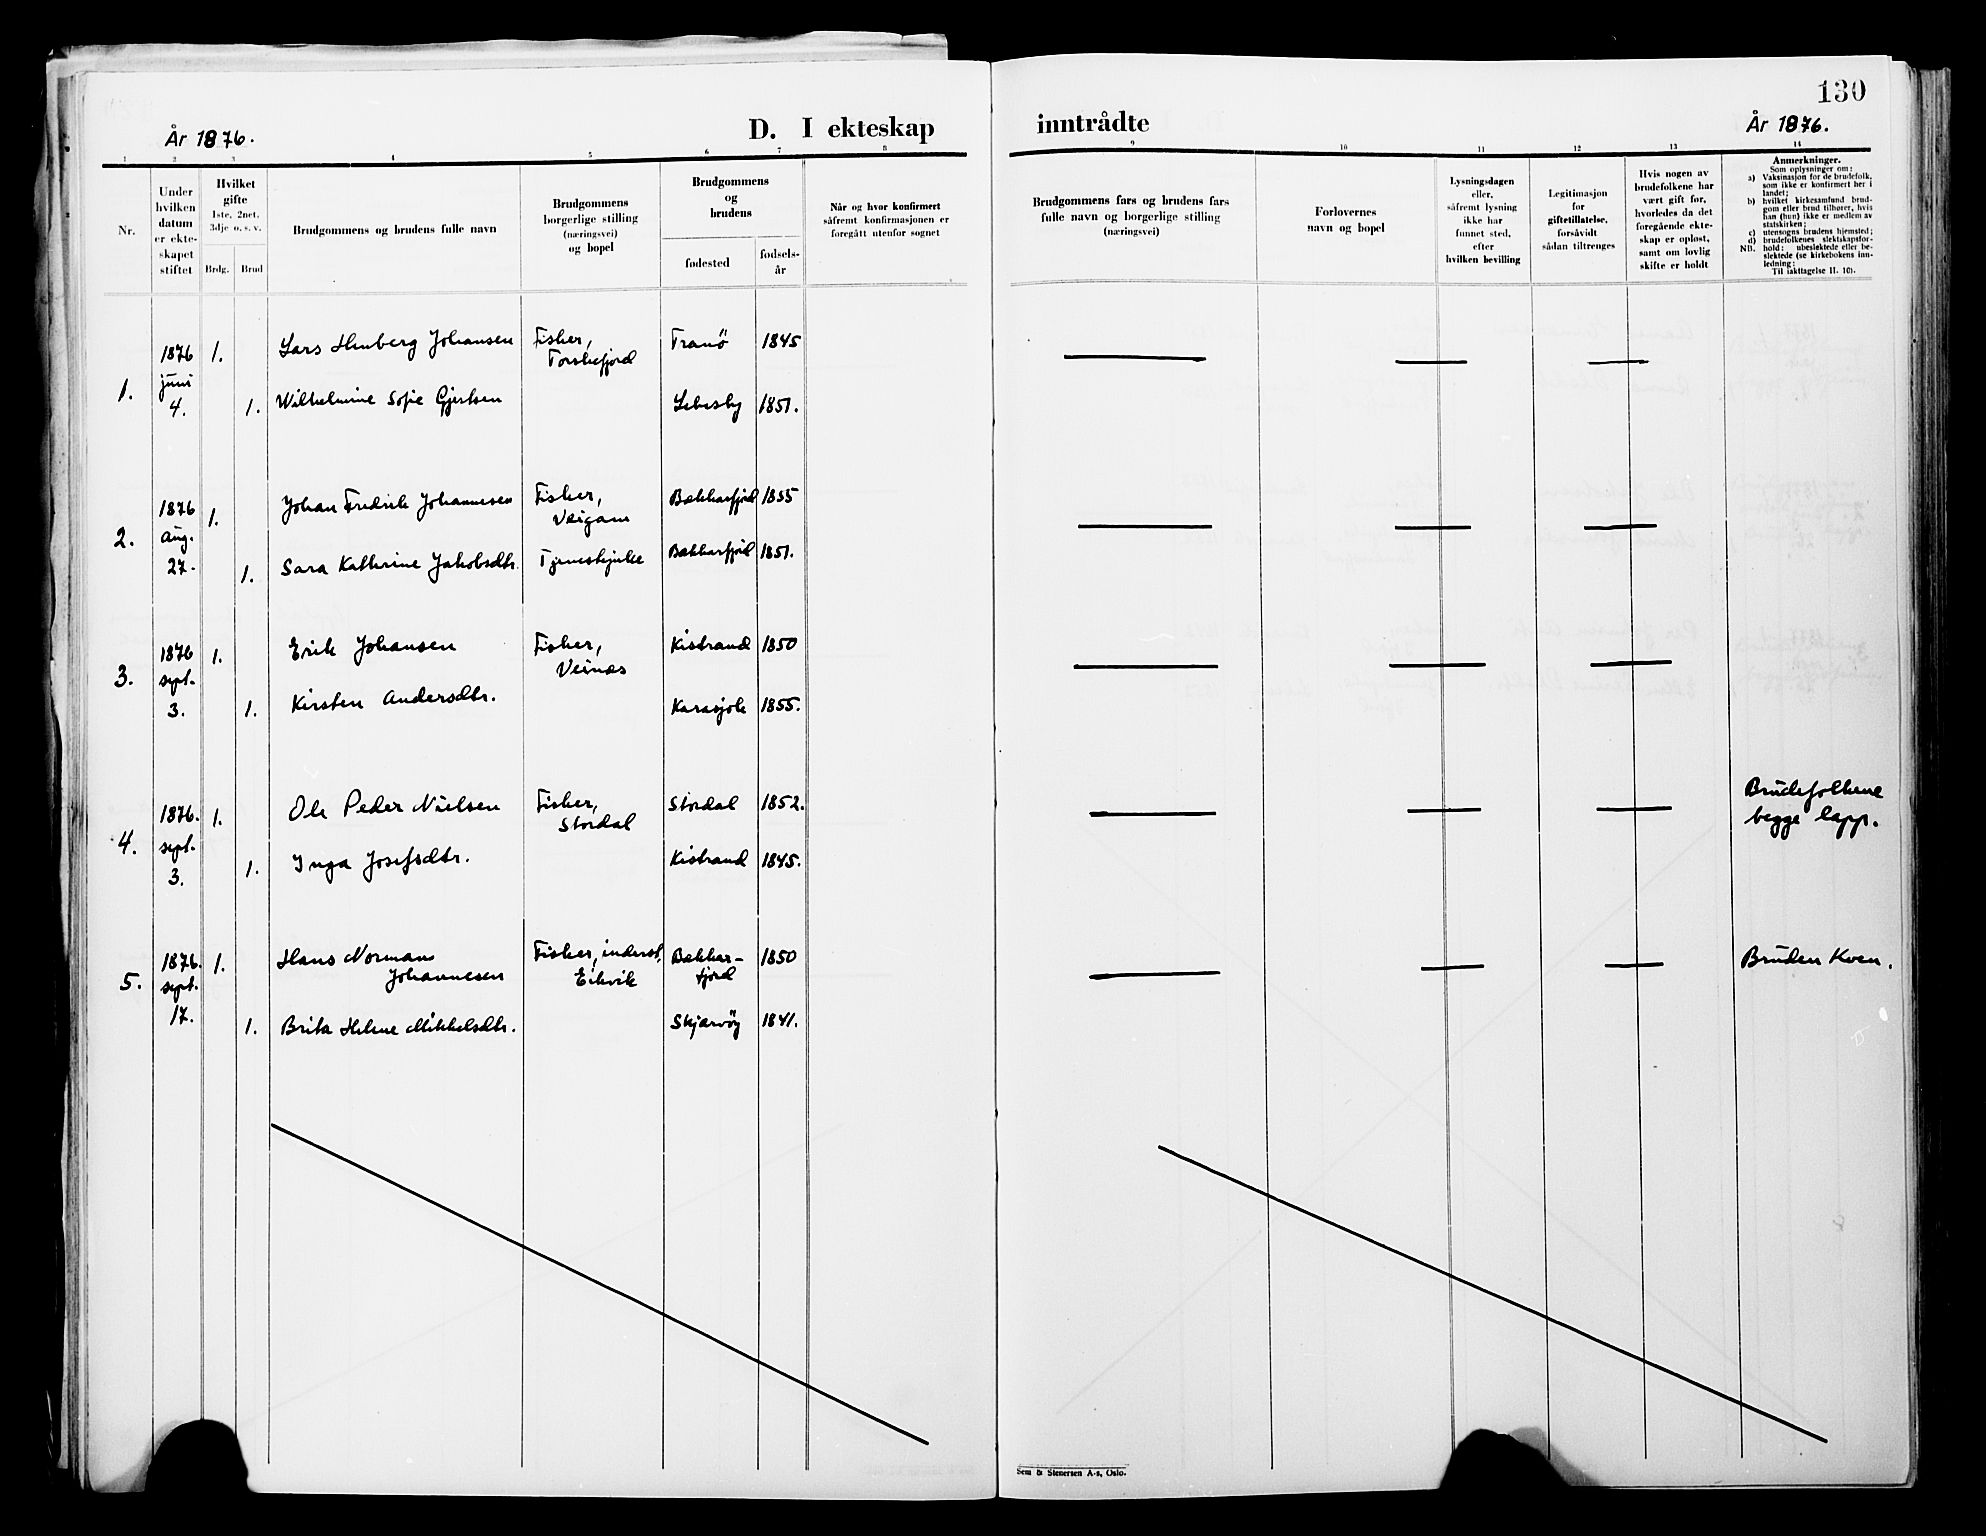 130
År 1876.
D. I ekteskap
inntrådte
År 1876.
1 2 3 4 5 6 7 8
9 10 11 12 13 14
Nr.
Under
hvilken
datum
er ekte-
skapet
stiftet
Hvilket
gifte
1ste, 2net.
3dje o. s. v.
Brdg.
Brud
Brudgommens og brudens fulle navn
Brudgommens
borgerlige stilling
(næringsvei)
og bopel
Brudgommens
og
brudens
fødested
fødsels-
år
Når og hvor konfirmert
såfremt konfirmasjonen er
foregått utenfor sognet
Brudgommens fars og brudens fars
fulle navn og borgerlige stilling
(næringsvei)
Forlovernes
navn og bopel
Lysningsdagen
eller,
såfremt lysning
ikke har
funnet sted,
efter
hvilken bevilling
Legitimasjon
for
giftetillatelse,
forsåvidt
sådan tiltrenges
Hvis nogen av
brudefolkene har
vært gift før,
hvorledes da det
foregående ekte-
skap er opløst,
samt om lovlig
skifte er holdt
Anmerkninger.
Som oplysninger om:
a) Vaksinasjon for de brudefolk,
som ikke er konfirmert her i
landet;
b) hvilket kirkesamfund brud-
gom eller brud tilhører, hvis
han (hun) ikke er medlem av
statskirken;
c) utensogns brudens hjemsted;
d) brudefolkenes slektskapsfor-
NB. hold: ubeslektede eller be-
slektede (se kirkebokens inn-
ledning:
Til iakttagelse II. 10).
1.
1876
juni
4.
1. Lars Johansen
Fisher,
Torskefjord
Tranö 1845
1. Wilhelmine Sofie Gjertsen
Lebesby 1851.
2.
1876
aug.
27.
1. Johan Fredrik Johannesen
Fisher,
Bækkarfjord 1855
1. Sara Kathrine Jakobsdtr.
Bækkarfjord 1851.
3.
1876
sept.
3.
1. Erik Johansen
Fisher,
Veinæs
Kistrand 1850
1. Kirsten Andersdtr.
Karasjok 1855.
4.
1876.
sept.
3.
1. Ole Peder Nielsen
Fisher,
Stordal
Stordal 1852.
Brudefolkene
begge lapp.
1. Inga Josefsdtr.
Kistrand 1845.
5.
1876.
sept.
17.
1. Hans Normann
Johannesen
Fisher, inderst,
Eikvik
Bækkar-
fjord
1850
Bruden Kven.
1. Brita Helene Mikkelsdtr.
Skjærvöy 1841.
Sem & Stenersen A-s, Oslo.